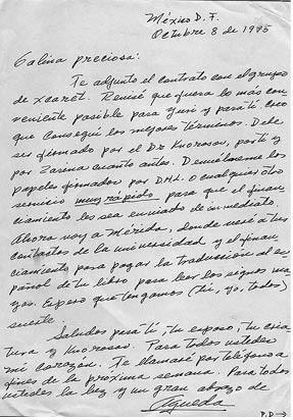 México D.F.
Octubre 8 de 1995
Galina preciosa:
Te adjunto el contrato con el grupo
de Xcaret. Revisé que fuera lo más con
veniente posible para Yuri y para ti creo
que conseguí los mejores términos. Debe
ser firmado por el Dr Knorosov, por ti y
por Zarina cuanto antes. Devuélvanme los
papeles firmados por DHL o cualquier otro
servicio muy rápido para que el finan
ciamiento les sea enviado de inmediato.
Ahora voy a Mérida, donde veré a tus
contactos de la universidad y el finan
ciamiento para pagar la traducción al es
pañol de tu libro para leer los signos ma
yas. Espero que tengamos (tú, yo, todos)
suerte.
Saludos para ti, tu esposo, tu cria
tura y Knorosov. Para todos ustedes
mi corazón. Te llamaré por teléfono a
fines de la próxima semana. Para todos
ustedes la luz y un gran abrazo de
Águeda
P.D.→